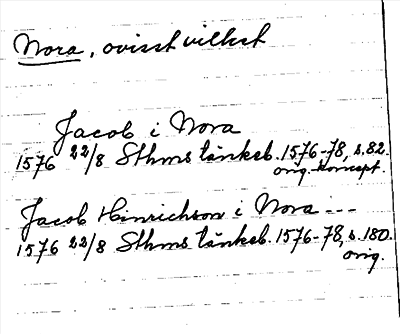 Nora, ovisst vilket
Jacob i Nora
1576 22/8 Sthms tänkeb. 1576-78, s. 82.
orig. koncept.
Jacob Hinrichson i Nora ---
1576 22/8 Sthms tänkeb. 1576-78, s. 180.
orig.